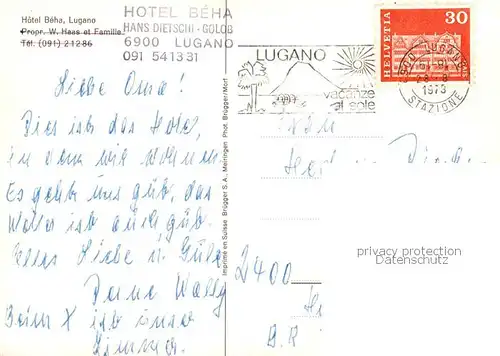 Hôtel Béha, Lugano
Propr. W. Haas et Famille
Tél. (091) 2 12 86
HOTEL BÉHA
HANS DIETSCHI - GOLOB
6900 LUGANO
091 541331
LUGANO
vacanze
al sole
HELVETIA
30
6900 LUGANO
1973
STAZIONE
Liebe Oma!
Dies ist das Hotel,
in dem wir wohnen.
Es geht uns gut, das
Wetter ist auch gut.
Alles Liebe u. Gute
Deine Wally
Beim X ist unser
Zimmer.
Imprimé en Suisse Brügger S.A., Meiringen Phot. Brügger/Mort
2400
B.R
privacy protection
Datenschutz